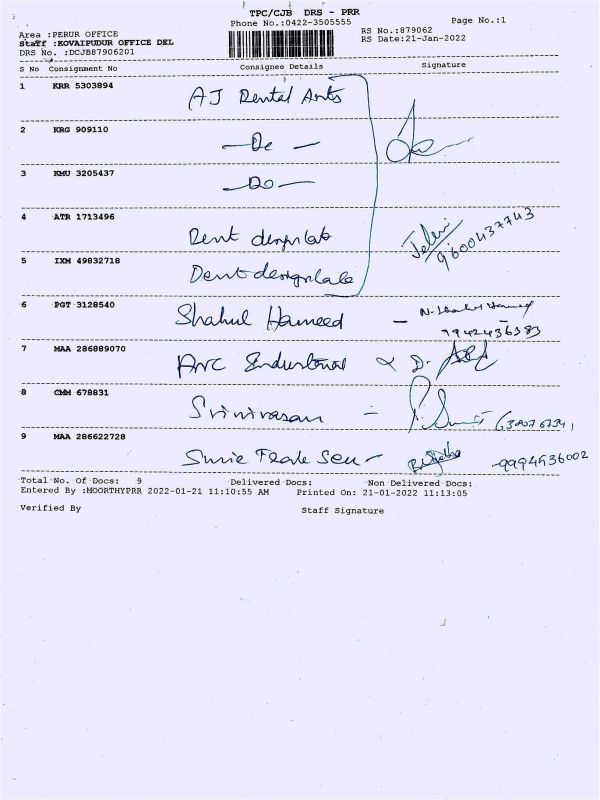 TPC/CJB DRS - PRR
Phone No.:0422-3505555
Page No.:1
Area :PERUR OFFICE
RS No.:879062
Staff :KOVAIPUDUR OFFICE DEL
RS Date:21-Jan-2022
DRS No. :DCJB87906201
S No Consignment No Consignee Details Signature
1 KRR 5303894 AJ Dental Arts
2 KRG 909110 — Do —
3 KMU 3205437 — Do —
4 ATR 1713496 Dent design lab 9600437743
5 IXM 49832718 Dent design lab
6 PGT 3128540 Shahul Hameed — N. Shahul Hameed
7942436383
7 MAA 286889070 Industrial
8 CMM 678831 Srinivasan —
9 MAA 286622728 9994536002
Total No. Of Docs: 9 Delivered Docs: Non Delivered Docs:
Entered By :MOORTHYPRR 2022-01-21 11:10:55 AM Printed On: 21-01-2022 11:13:05
Verified By Staff Signature